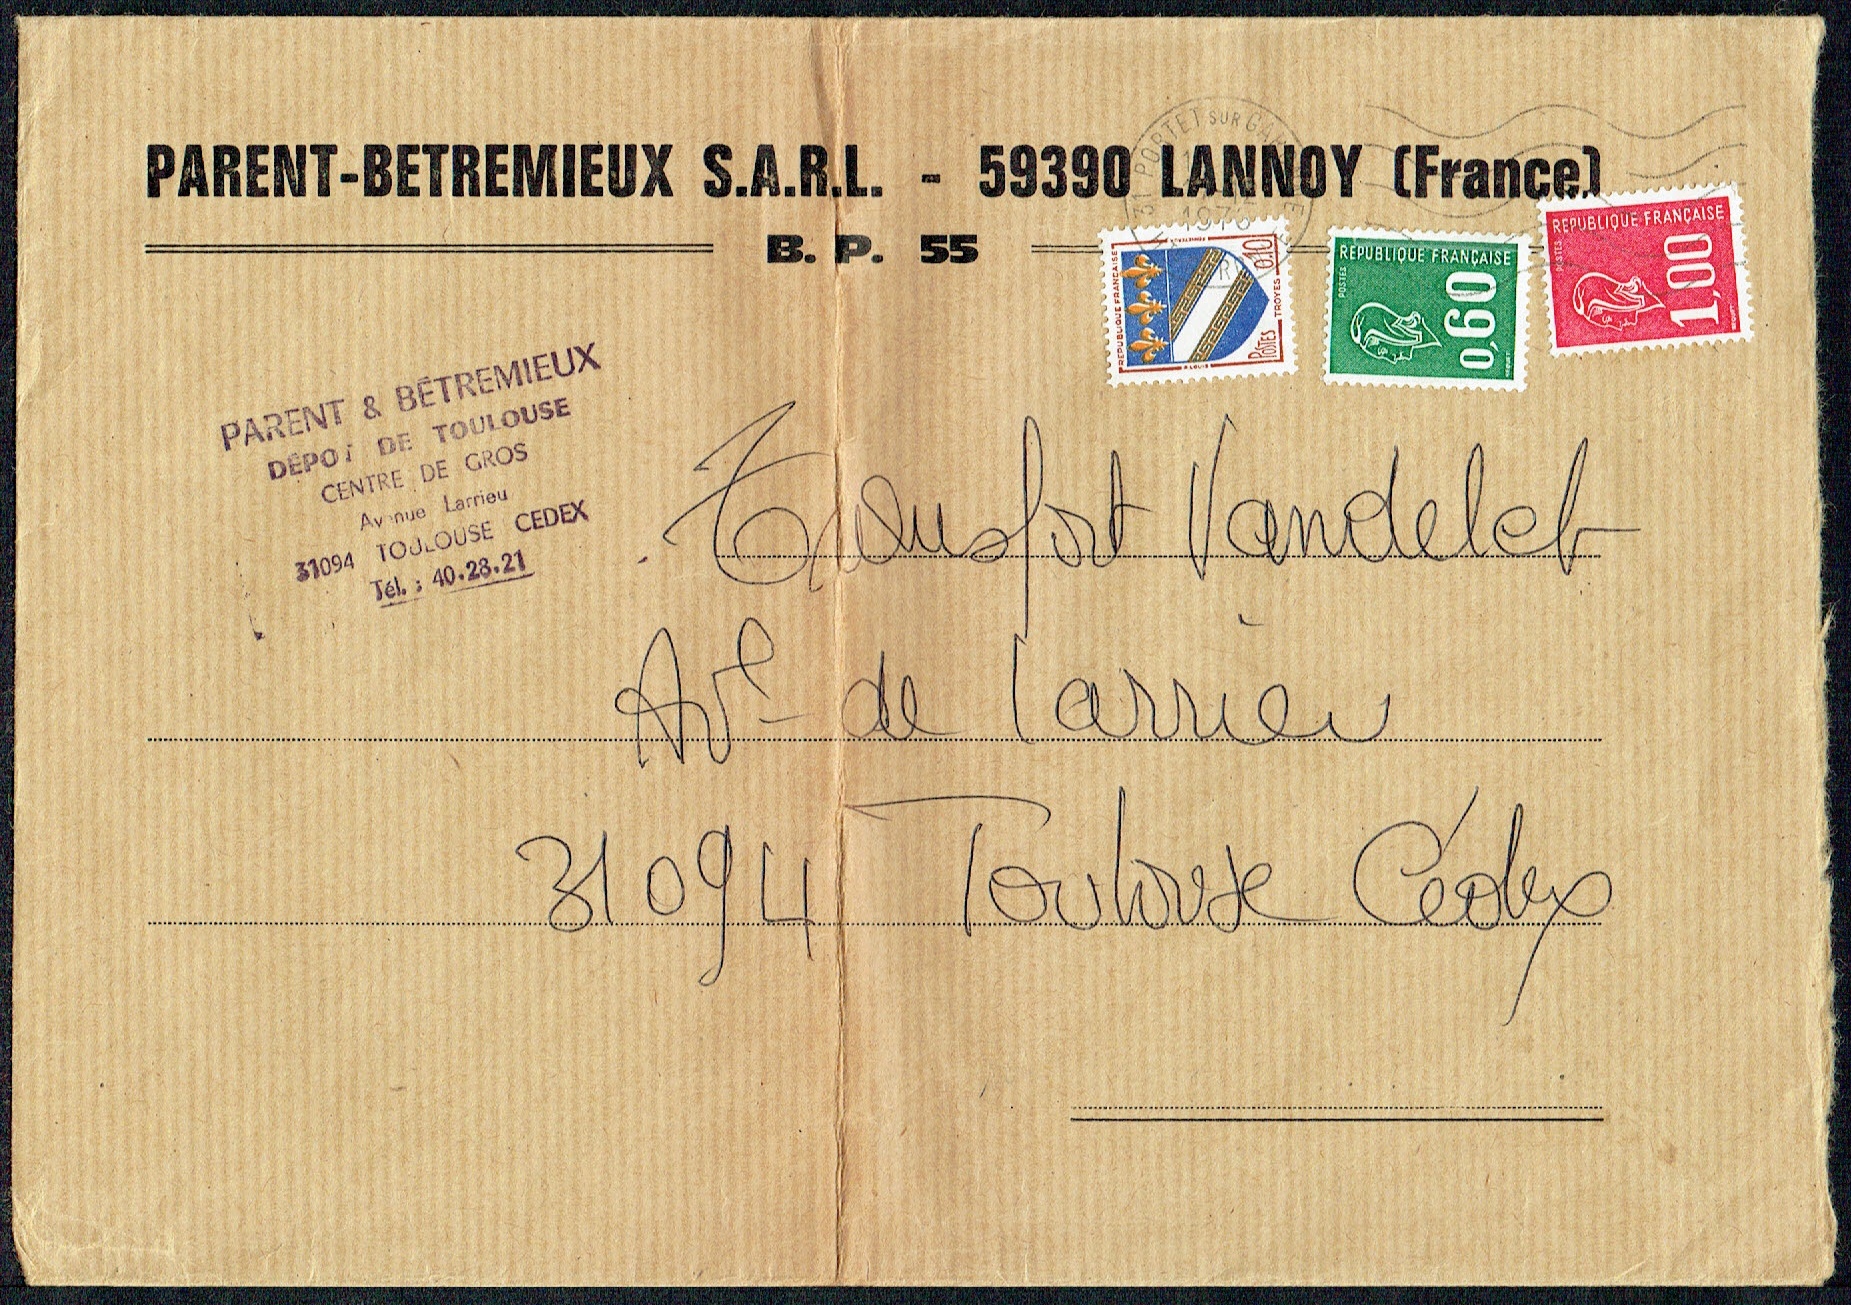 PARENT-BETREMIEUX S.A.R.L. - 59390 LANNOY (France)
B. P. 55
31 PORTET SUR GARONNE
REPUBLIQUE FRANÇAISE
0,10
POSTES
TROYES
REPUBLIQUE FRANÇAISE
POSTES
0,60
REPUBLIQUE FRANÇAISE
POSTES
1,00
PARENT & BÉTREMIEUX
DÉPOT DE TOULOUSE
CENTRE DE GROS
Avenue Larrieu
31094 TOULOUSE CEDEX
Tél. : 40.28.21
Vandelet
Ave de Larrieu
31094 Toulouse Cédex